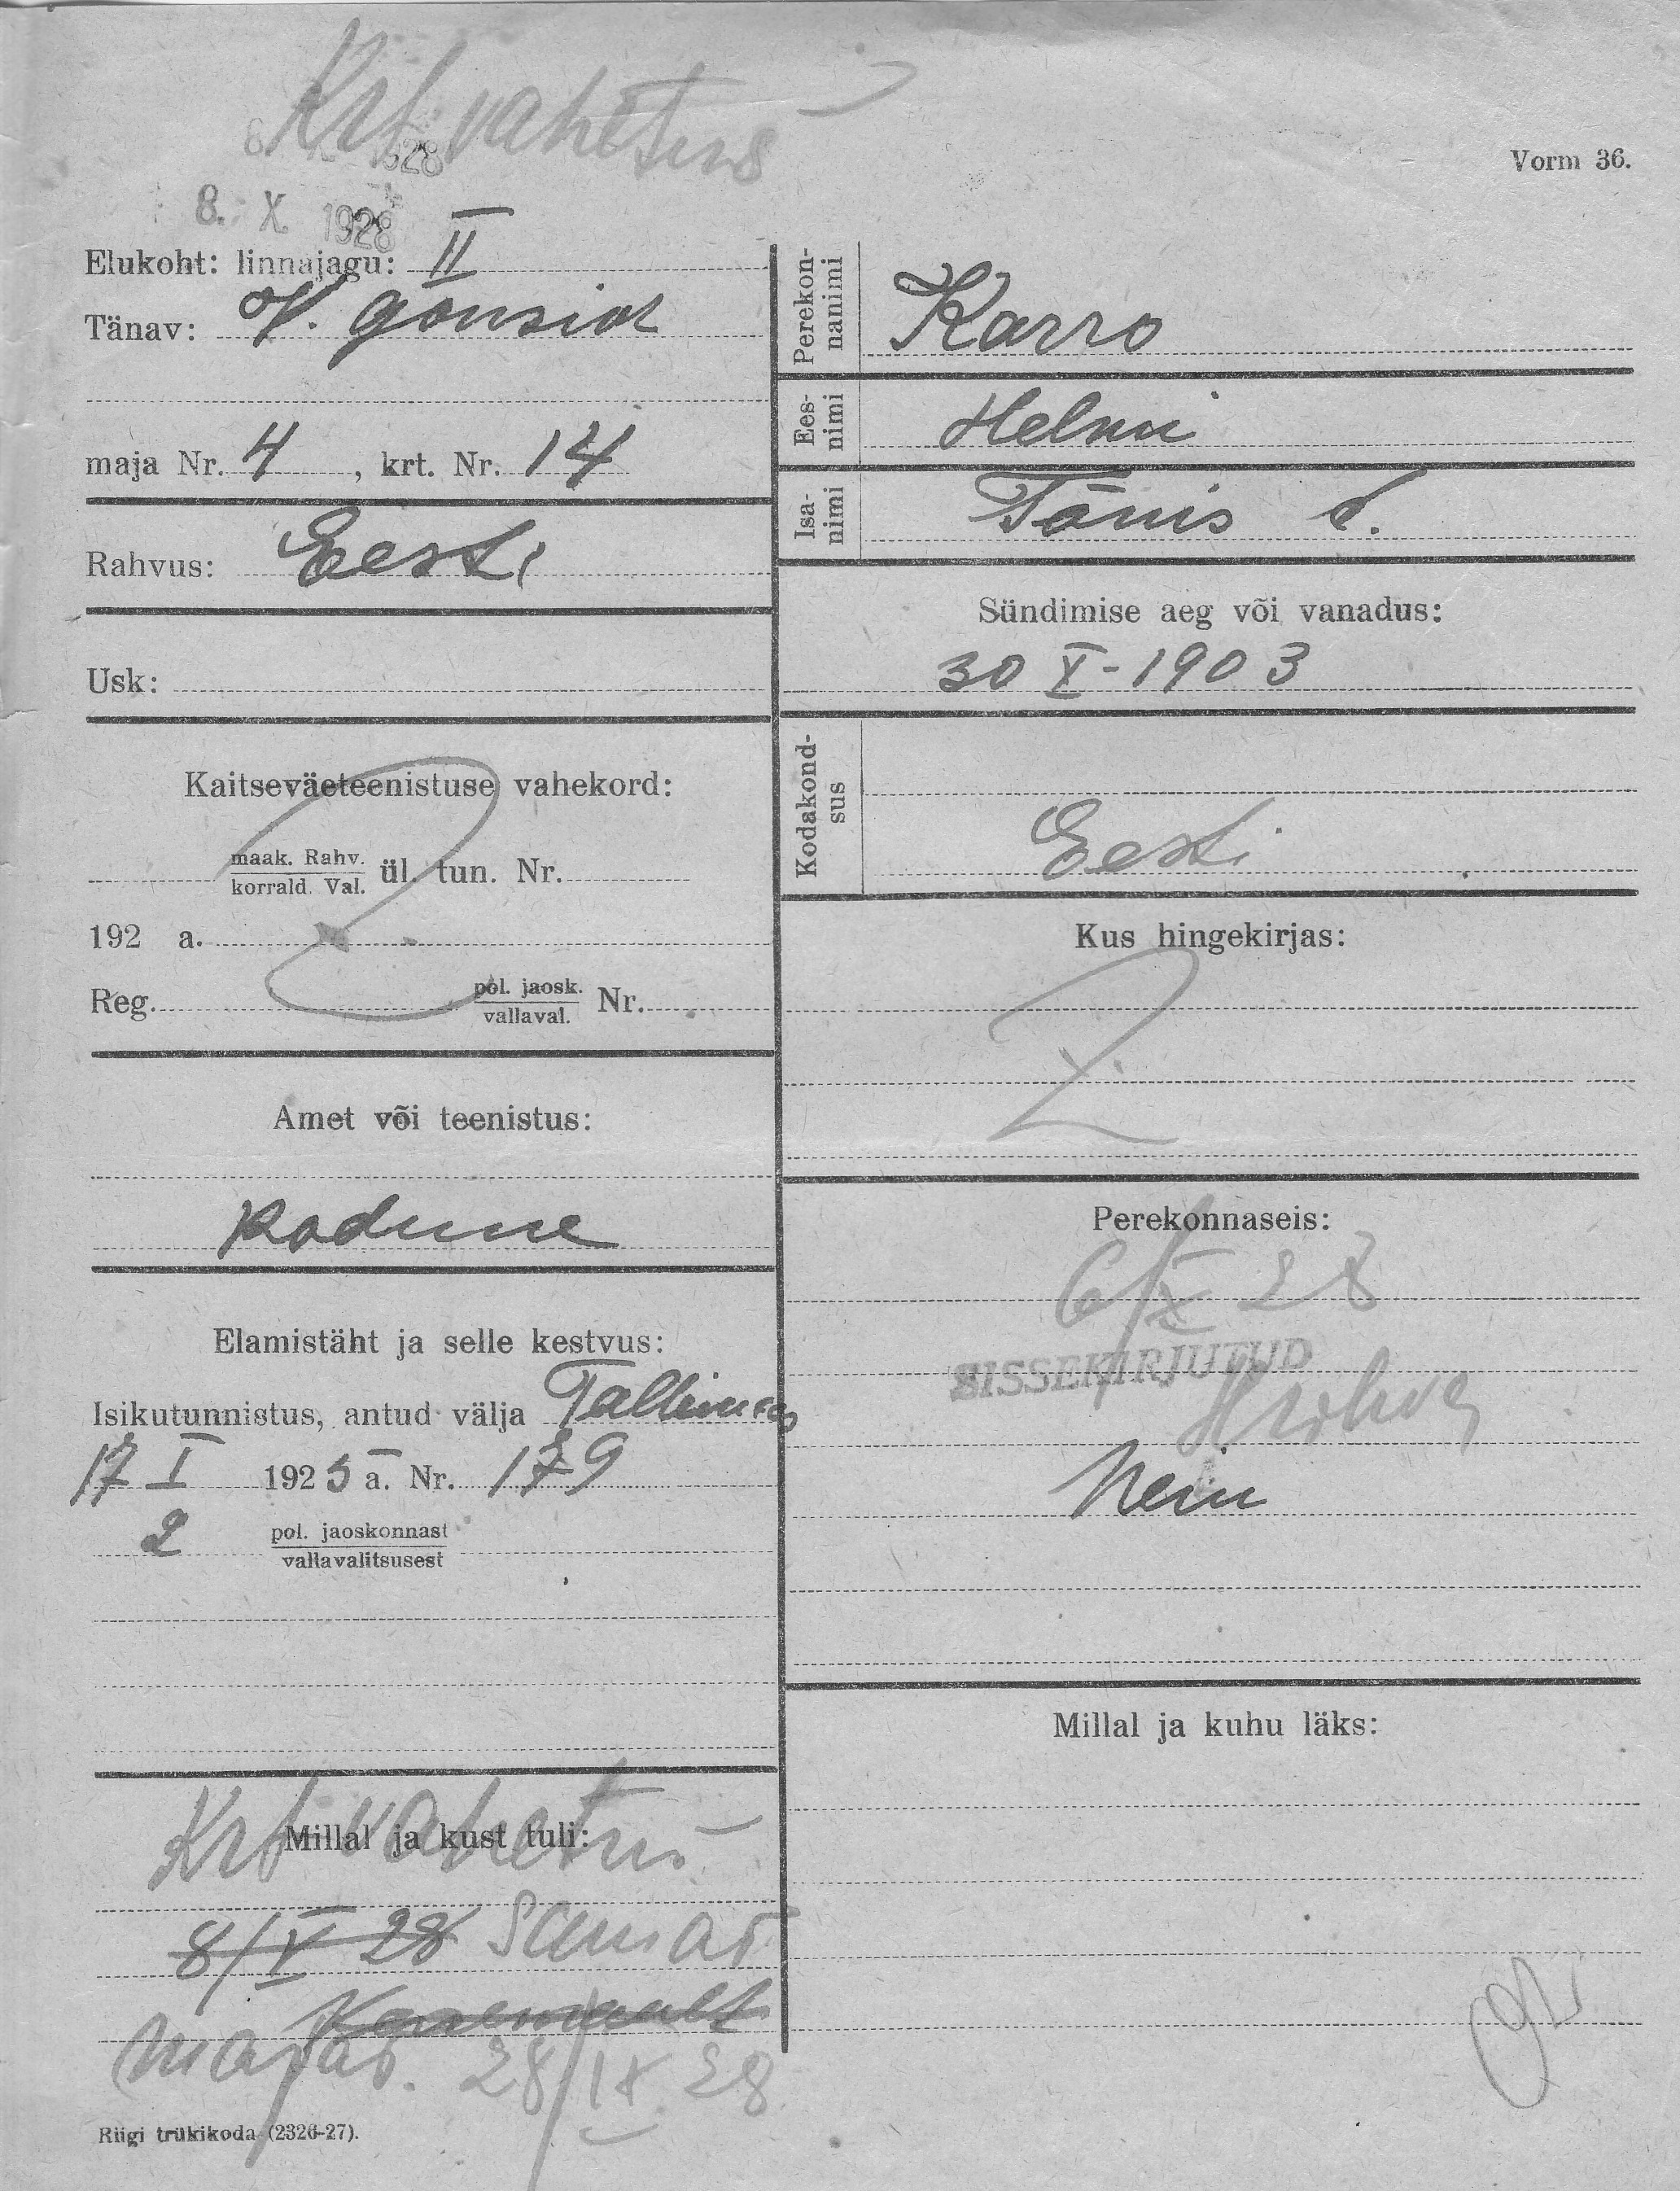 Krt vahetus
Vorm 36.
8. X 1928
Elukoht: linnajagu: II
Tänav: V. Gonsiori
maja Nr. 4, krt. Nr. 14
Rahvus: Eesti
Usk:
Kaitseväeteenistuse vahekord:
maak. Rahv.
korrald. Val. ül. tun. Nr.
192 a.
Reg. pol. jaosk.
vallaval. Nr.
Amet või teenistus:
kodune
Elamistäht ja selle kestvus:
Isikutunnistus, antud välja Tallinnas
17 I 1923 a. Nr. 179
2 pol. jaoskonnast
vallavalitsusest
Krt vahetus
Millal ja kust tuli:
8/V 28 Samas
majas. 28/IX 28
Riigi trükikoda (2326-27).
Perekon-
nanimi Karro
Ees-
nimi Helmi
Isa-
nimi Tõnis t.
Sündimise aeg või vanadus:
30 X-1903
Kodakond-
sus
Eesti
Kus hingekirjas:
Perekonnaseis:
6/X 28
SISSEKIRJUTUD
Millal ja kuhu läks: